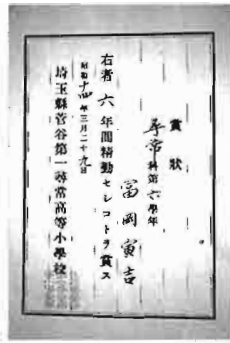 賞狀
尋常科第六學年
富岡寅吉
右者六年間精勤セシコトヲ賞ス
昭和十四年三月二十九日
埼玉縣菅谷第一尋常高等小學校